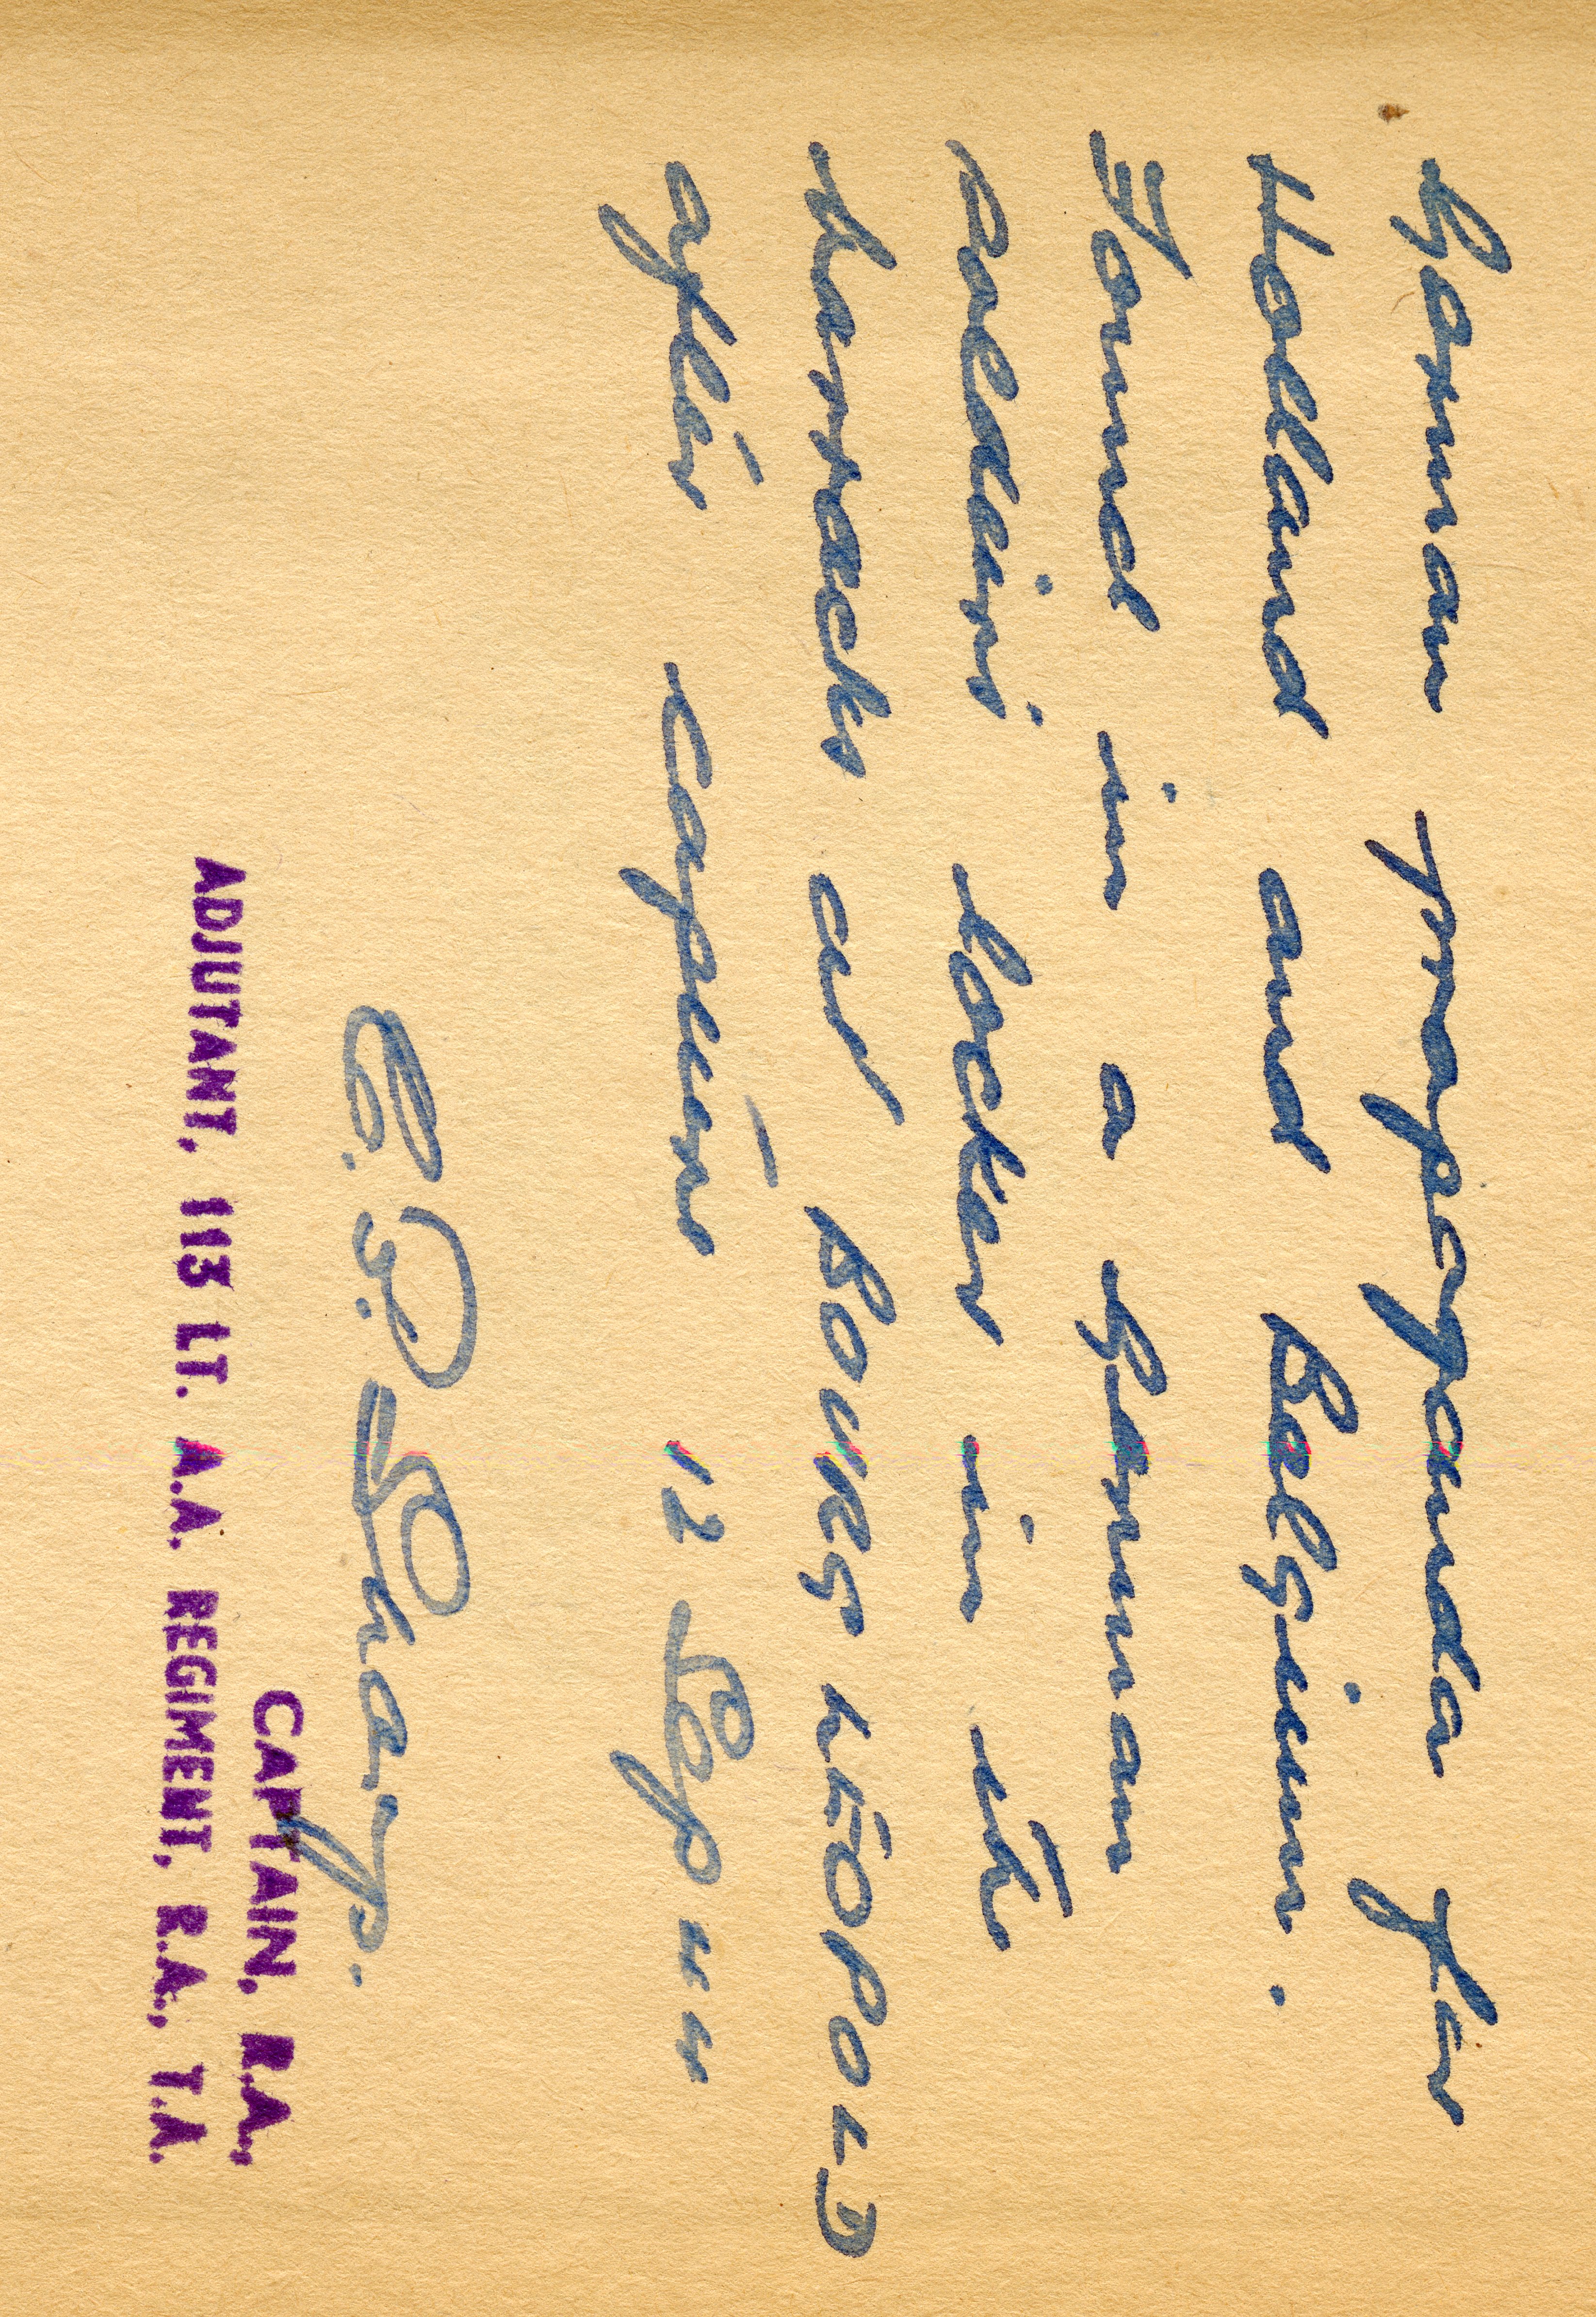 German propaganda for
Holland and Belgium.
Found in a German
soldiers locker in the
barracks at BOURG LÉOPOLD
after capture 12 Sep 44
Sharp.
CAPTAIN, R.A.,
ADJUTANT, 113 LT. A.A. REGIMENT, R.A., T.A.